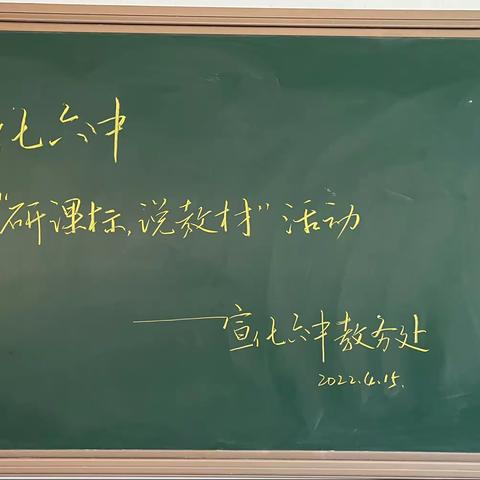 化六中
“研课标,说教材”活动
——宣化六中教务处
2022.4.15.